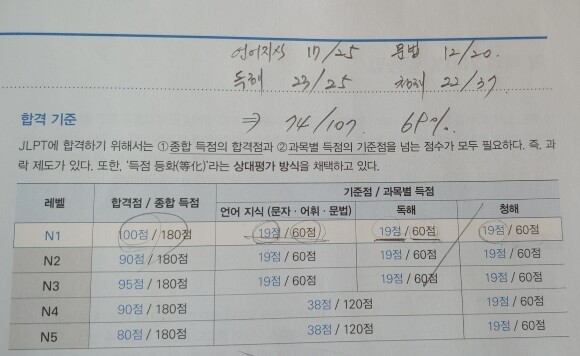 언어지식 17/25 문법 12/20.
독해 23/25 청해 22/37
⇒ 74/107. 69%.
합격 기준
JLPT에 합격하기 위해서는 ①종합 득점의 합격점과 ②과목별 득점의 기준점을 넘는 점수가 모두 필요하다. 즉, 과
락 제도가 있다. 또한, '득점 등화(等化)'라는 상대평가 방식을 채택하고 있다.
레벨 합격점 / 종합 득점 기준점 / 과목별 득점
언어 지식 (문자·어휘·문법) 독해 청해
N1 100점 / 180점 19점 / 60점 19점 / 60점 19점 / 60점
N2 90점 / 180점 19점 / 60점 19점 / 60점 19점 / 60점
N3 95점 / 180점 19점 / 60점 19점 / 60점 19점 / 60점
N4 90점 / 180점 38점 / 120점 19점 / 60점
N5 80점 / 180점 38점 / 120점 19점 / 60점